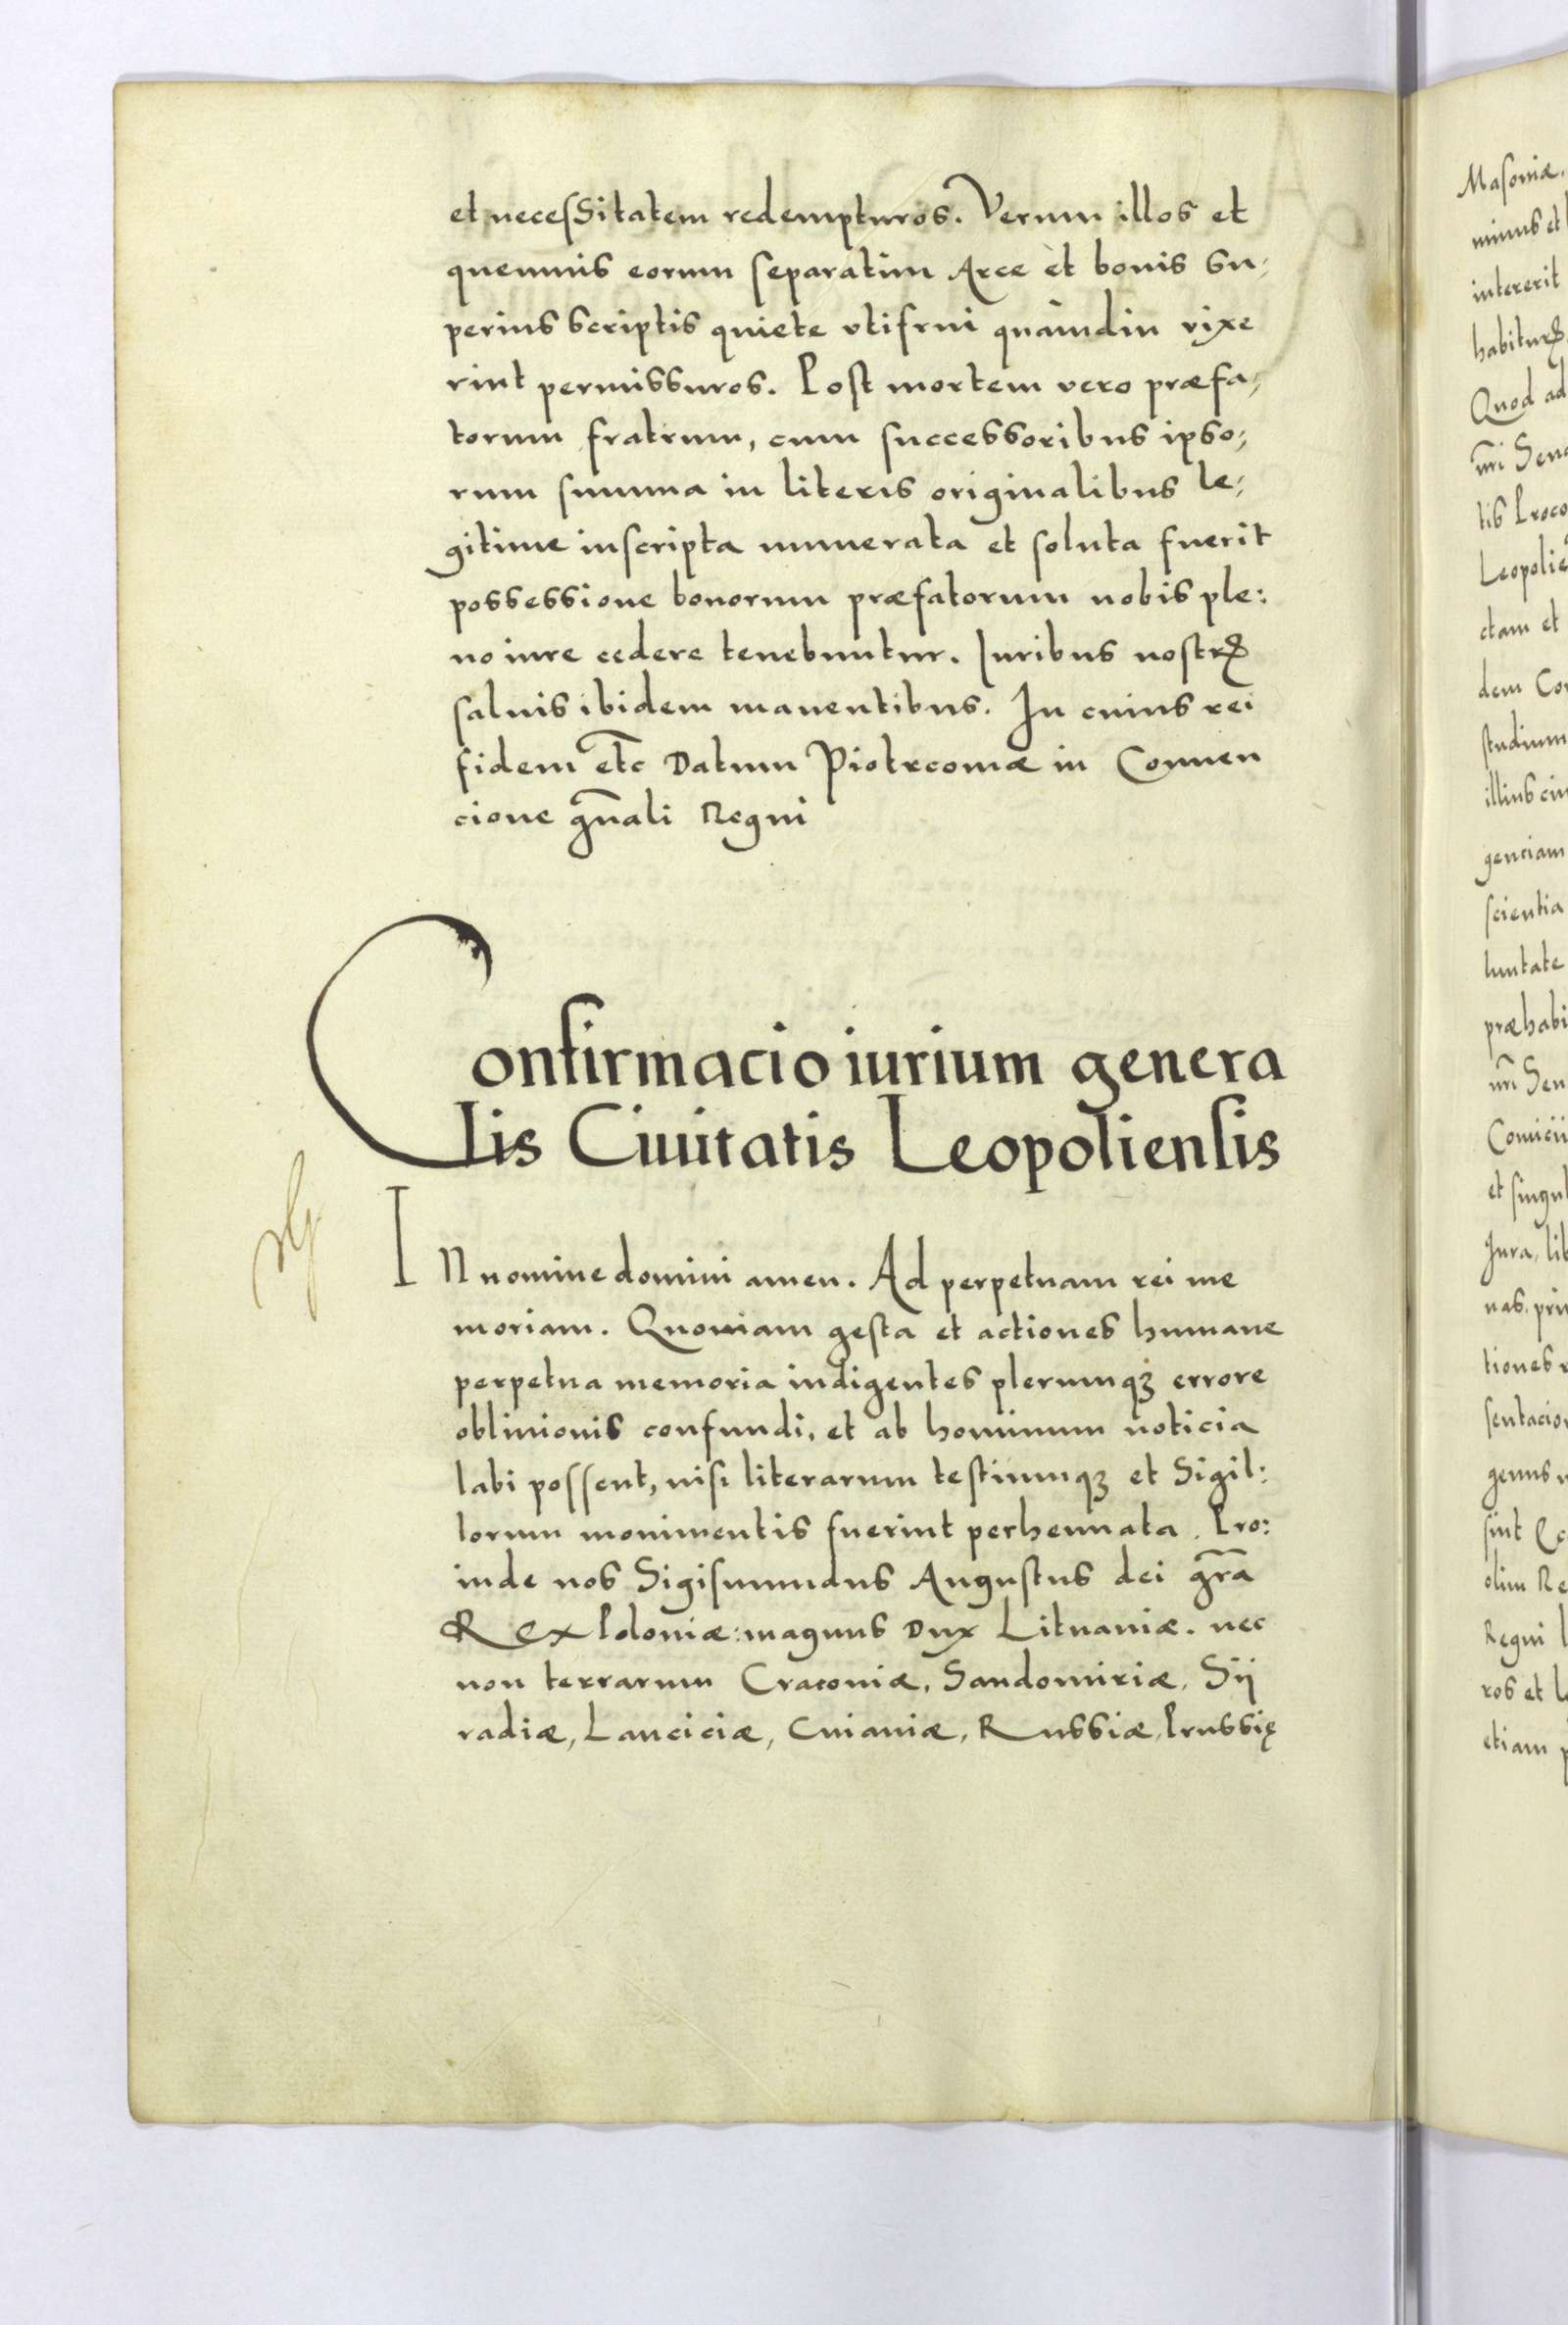 et necesSitatem redempturos. Verum illos et
quemuis eorum separatim Arce et bonis su⸗
perius scriptis quiete vtifrui quamdiu vixe
rint permissuros. Post mortem vero præfa⸗
torum fratrum, cum successoribus ipso⸗
rum summa in literis originalibus le⸗
gitime inscripta numerata et soluta fuerit
possessione bonorum præfatorum nobis ple:
no iure cedere tenebuntur. Iuribus nostrꝭ
saluis ibidem manentibus. In cuius rei
fidem etc̄ Datum Piotrcouiæ in Conuen
cione gn̄ali Regni
Confirmacio iurium genera
lis Ciuitatis Leopoliensis
IN nomine domini amen. Ad perpetuam rei me
moriam. Quoniam gesta et actiones humane
perpetua memoria indigentes plerumqꝫ errore
obliuionis confundi, et ab hominum noticia
labi possent, nisi literarum testiumqꝫ et Sigil:
lorum monimentis fuerint perhennata. Pro:
inde nos Sigismundus Augustus dei gr̄a
Rex Poloniæ: magnus Dux Lituaniæ. nec
non terrarum Cracouiæ, Sandomiriæ, Sij
radiæ, Lanciciæ, Cuiauiæ, Russiæ, Prussię
Masouiæ,
minus et
intererit
habiturꝭ
Quod ad
nr̄i Sena
tis Proco
Leopolie
ctam et
dem Con
studium
illius ciu
genciam
scientia
luntate
præhabi
nr̄i Sen
Comicii
et singul
Jura, lib
nas, pri
tiones
sentacion
genus
sint
olim Re
Regni
ros et
etiam p